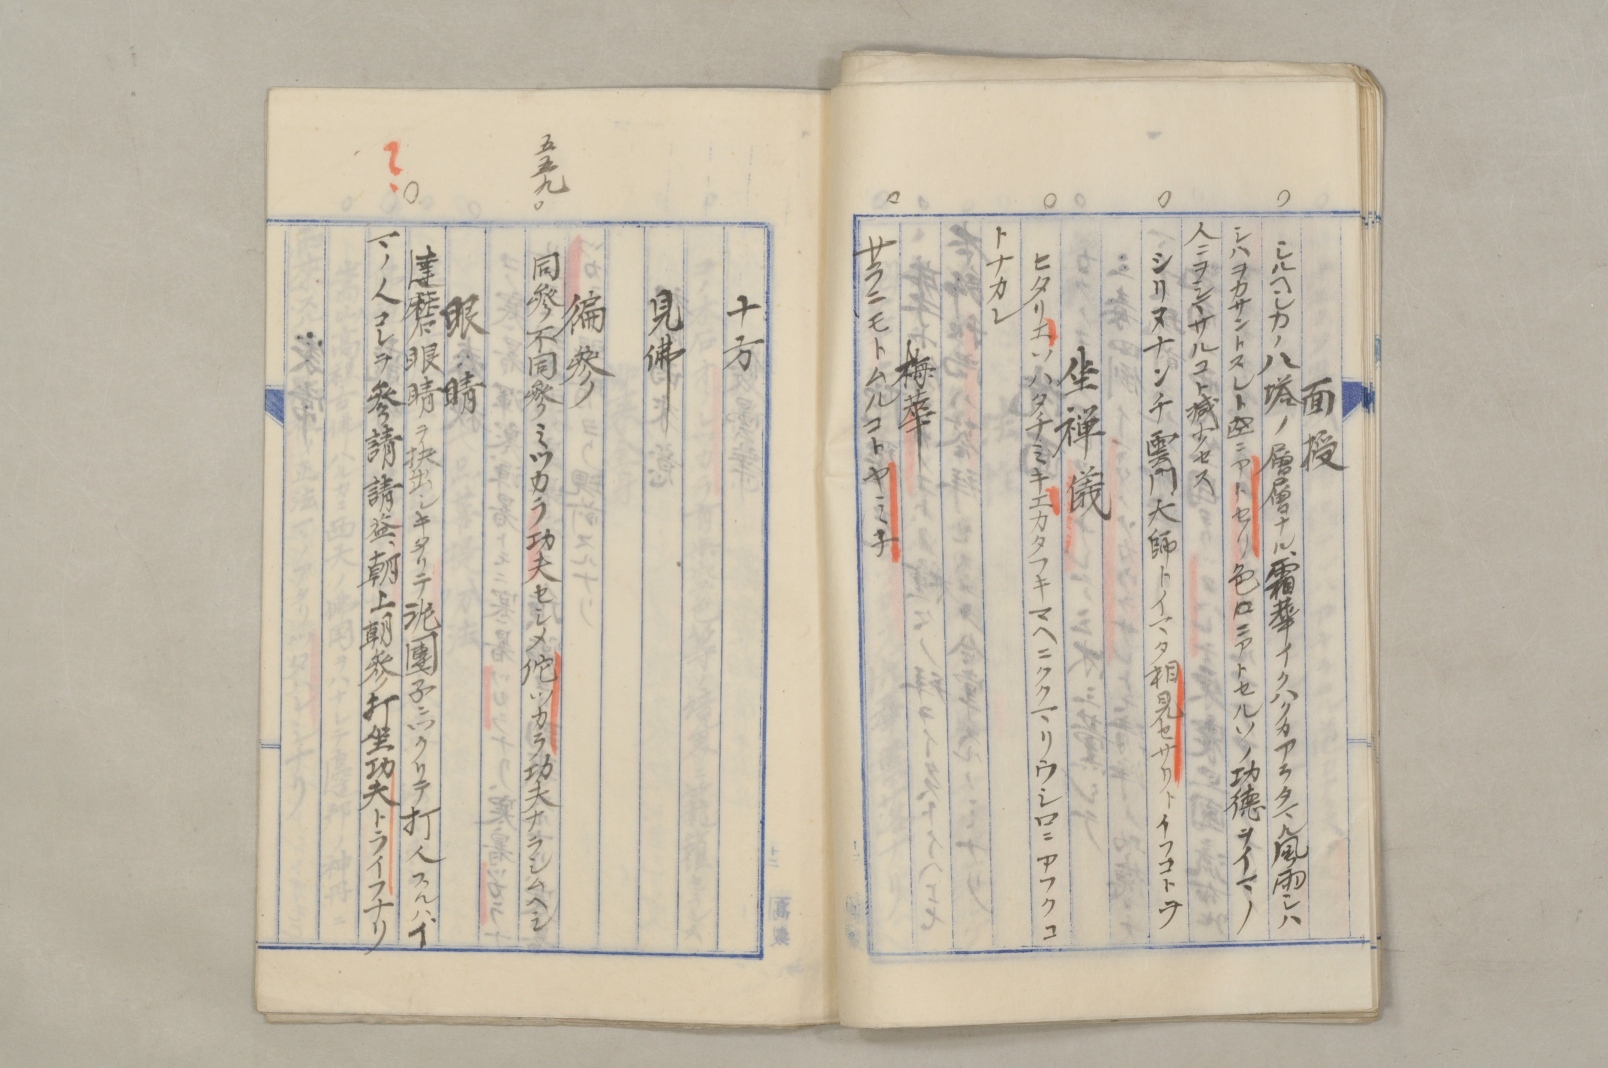 面授
シルヘシカノ八塔ノ層層ナル、霜華イクハクカアラタマル風雨シハ
シハヲカサントスレト空ニアトセリ色ニアトセルソノ功徳ヲイマノ
人ニヲシマサルコト減少セス
シリヌナンチ雲門大師トイマタ相見セサリトイフコトヲ
坐禅儀
ヒタリエソハタチミキエカタフキマヘニクヽマリウシロニアフクコ
トナカレ
梅華
サラニモトムルコトヤミ子
十方
見佛
五五九
徧参
同参不同参ミツカラ功夫セシメ佗ツカラ功夫ナラシムヘシ
眼睛
達磨眼睛ヲ抉出シキタリテ泥團子ニツクリテ打人スルハ、イ
マノ人コレヲ参請請益、朝上朝参打坐功夫トライフナリ